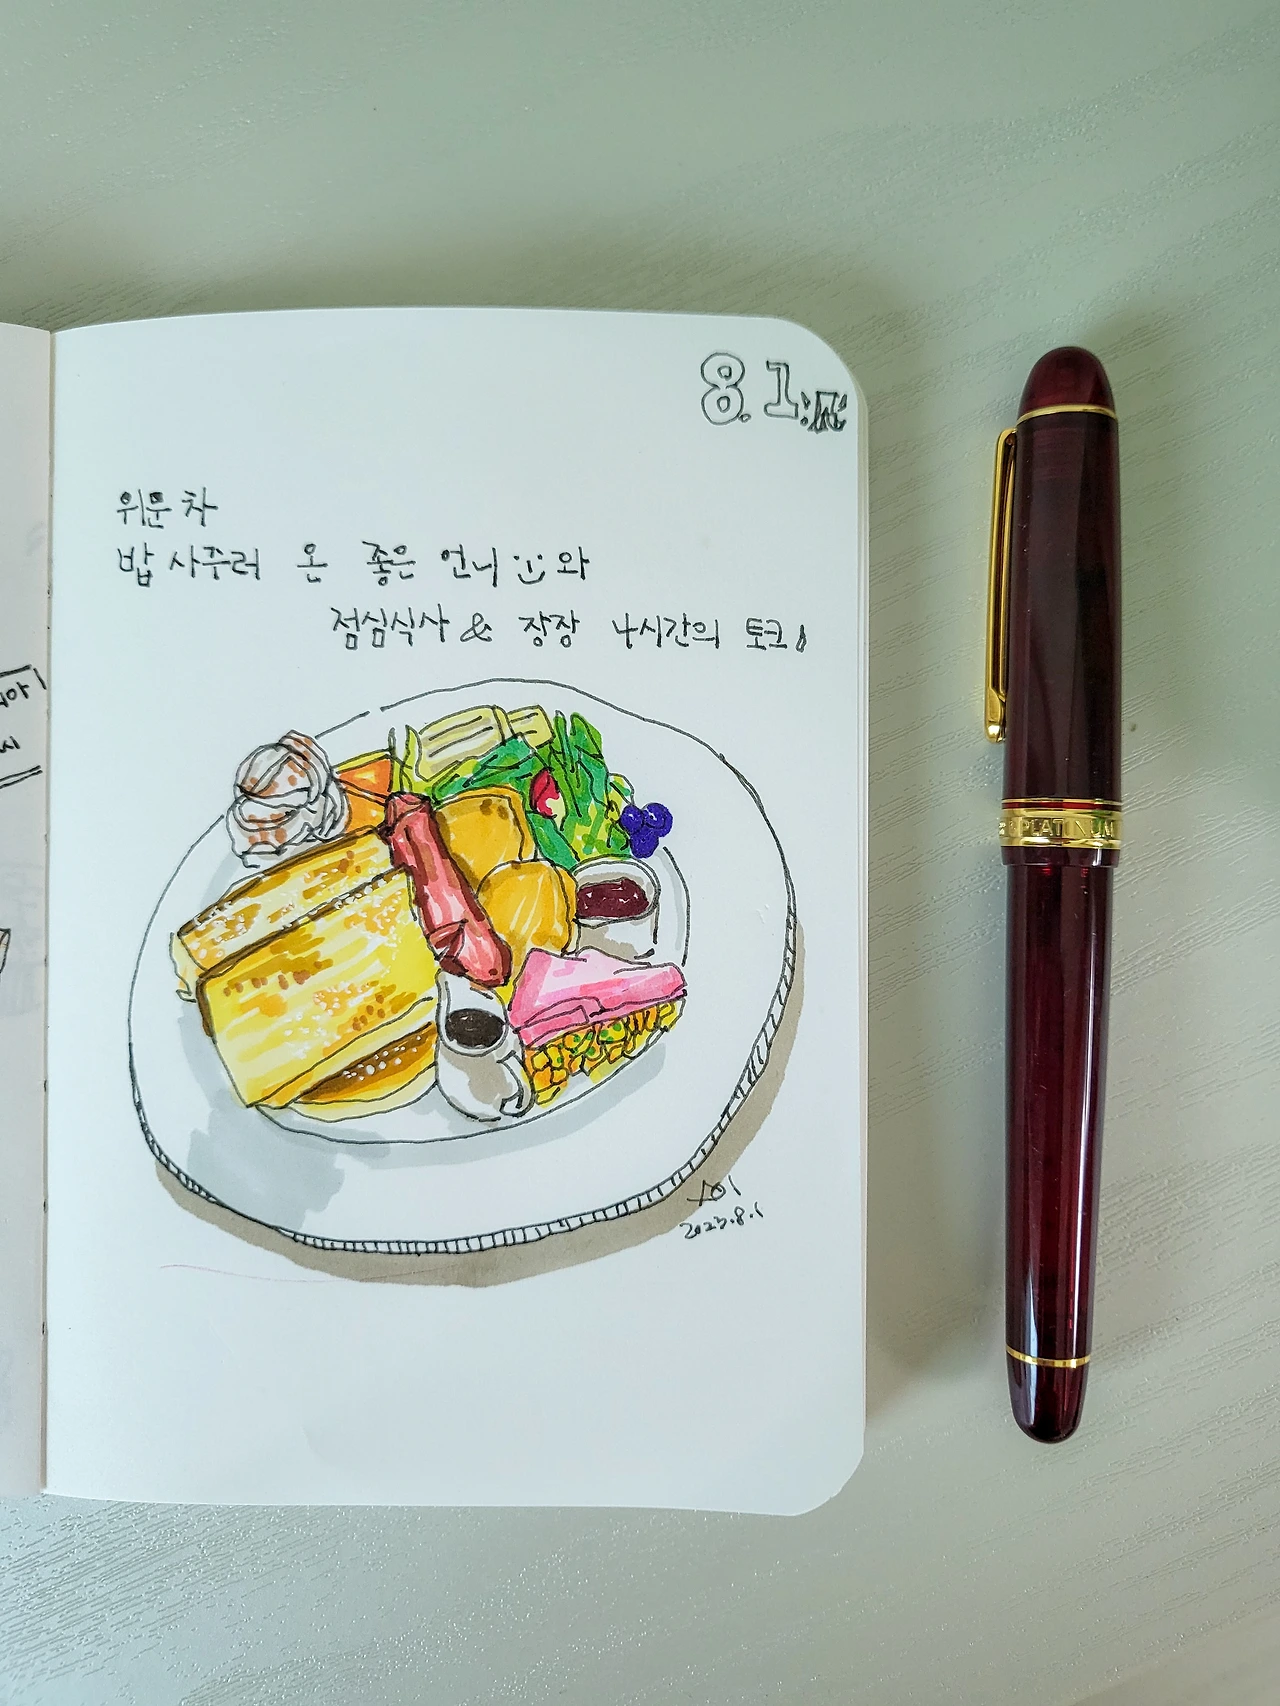 8.1:火
위문 차
밥 사주러 온 좋은 언니와
점심식사 & 장장 4시간의 토크!
2023.8.1
PLATINUM